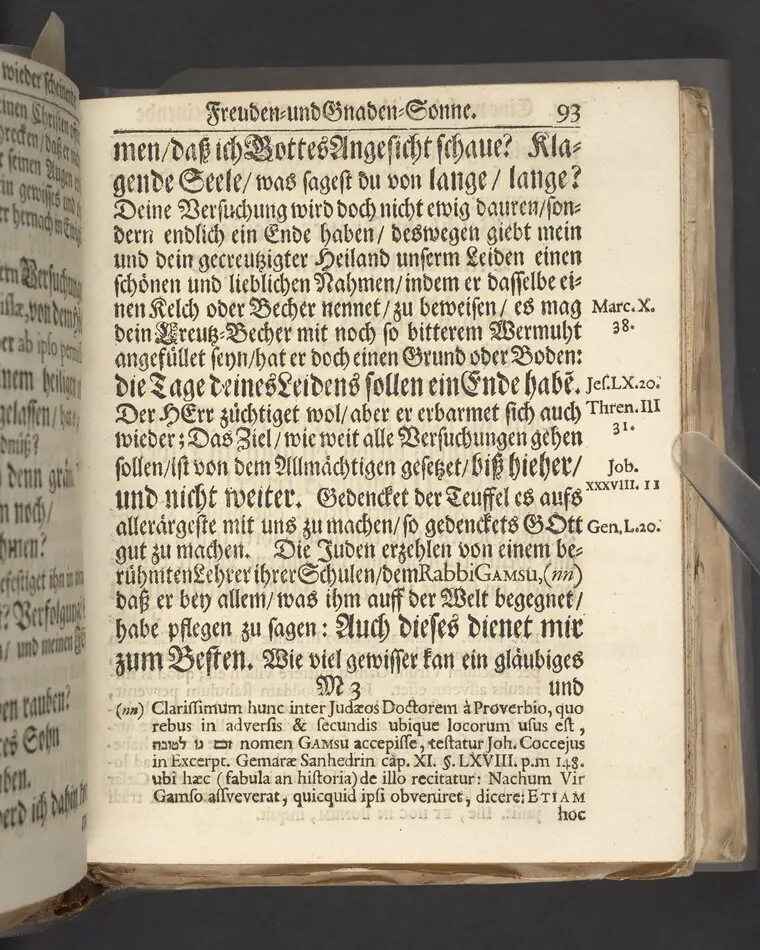 wieder scheinende
Freuden-und Gnaden-Sonne. 93
men/daß ich Gottes Angesicht schaue? Kla-
gende Seele/was sagest du von lange/ lange?
Deine Versuchung wird doch nicht ewig dauren/son-
dern endlich ein Ende haben/ deswegen giebt mein
und dein gecreutzigter Heiland unserm Leiden einen
schönen und lieblichen Nahmen/indem er dasselbe ei-
nen Kelch oder Becher nennet/zu beweisen/ es mag
Marc. X.
38.
dein Kreutz-Becher mit noch so bitterem Wermuht
angefüllet seyn/hat er doch einen Grund oder Boden:
die Tage deines Leidens sollen ein Ende habē.
Jes. LX. 20.
Der HErr züchtiget wol/aber er erbarmet sich auch
Thren. III
31.
wieder; Das Ziel/wie weit alle Versuchungen gehen
sollen/ist von dem Allmächtigen gesetzet/biß hieher/
Job.
XXXVIII. 11
und nicht weiter. Gedencket der Teuffel es aufs
allerärgeste mit uns zu machen/so gedenckets GOtt
Gen. L. 20.
gut zu machen. Die Juden erzehlen von einem be-
rühmten Lehrer ihrer Schulen/dem Rabbi GAMSU,(nn)
daß er bey allem/was ihm auff der Welt begegnet/
habe pflegen zu sagen: Auch dieses dienet mir
zum Besten. Wie viel gewisser kan ein gläubiges
M 3 und
(nn) Clarissimum hunc inter Judæos Doctorem à Proverbio, quo
rebus in adversis & secundis ubique locorum usus est,
גם זו לטובה nomen GAMSU accepisse, testatur Joh. Coccejus
in Excerpt. Gemaræ Sanhedrin cap. XI. §. LXVIII. p.m 148.
ubi hæc (fabula an historia) de illo recitatur: Nachum Vir
Gamso assveverat, quicquid ipsi obveniret, dicere: ETIAM
hoc